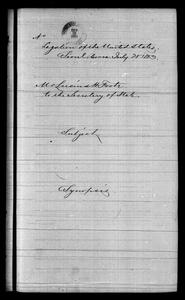 No
Legation of the United States,
Seoul Corea July 21st 1883
Mr Lucius H. Foote
to the Secretary of State.
Subject
Synopsis